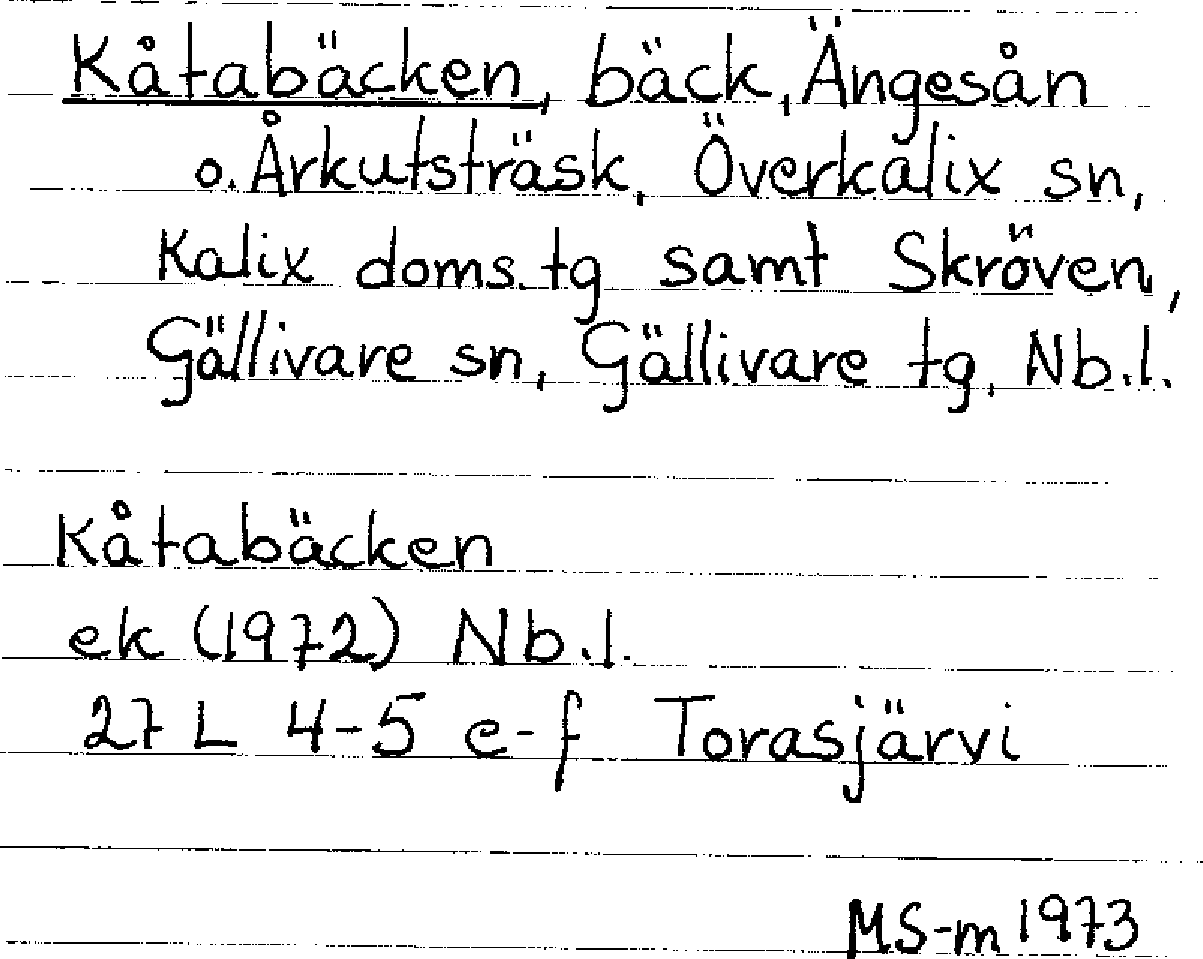 Kåtabäcken, bäck, Ängesån
o. Årkutsträsk, Överkalix sn,
Kalix doms. tg samt Skröven,
Gällivare sn, Gällivare tg, Nb.l.
Kåtabäcken
ek (1972) Nb.l.
27 L 4-5 e-f Torasjärvi
MS-m 1973